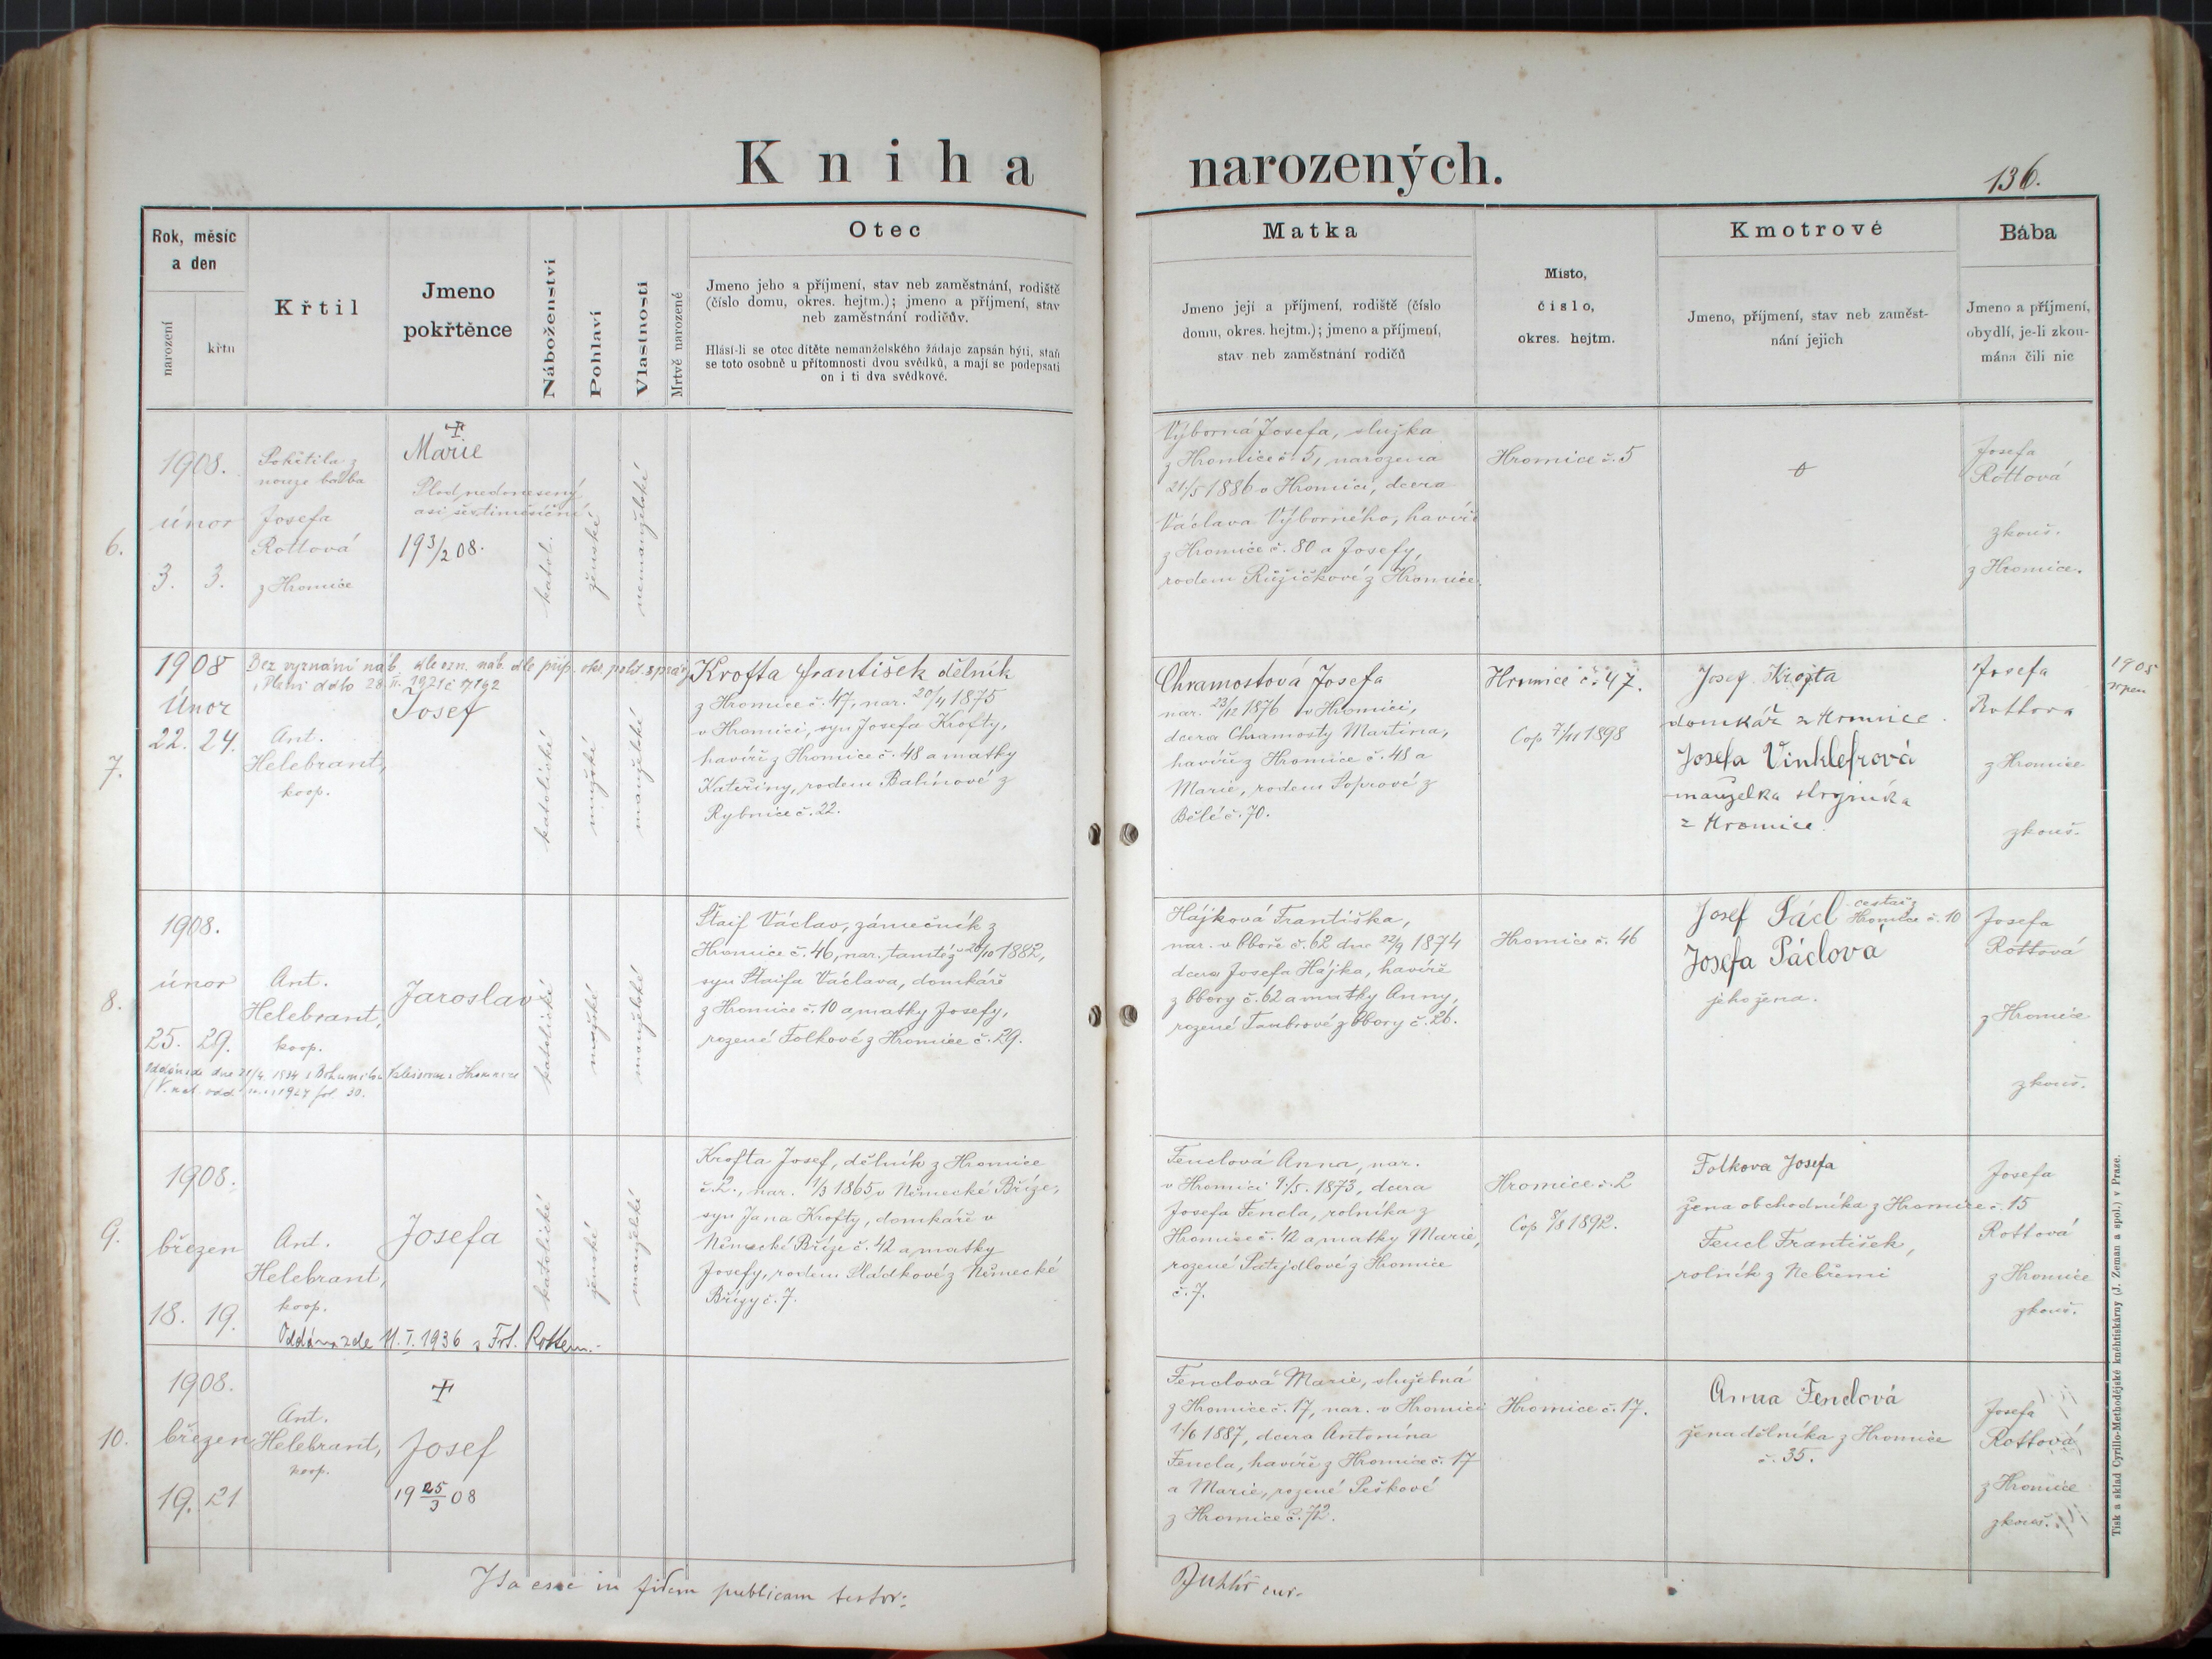 Kniha narozených.
136.
Rok, měsíc
a den
narození
křtu
Křtil
Jmeno
pokřtěnce
Náboženství
Pohlaví
Vlastnosti
Mrtvě narozené
Otec
Jmeno jeho a příjmení, stav neb zaměstnání, rodiště
(číslo domu, okres. hejtm.); jmeno a příjmení, stav
neb zaměstnání rodičův.
Hlásí-li se otec dítěte nemanželského žádaje zapsán býti, staň
se toto osobně u přítomnosti dvou svědků, a mají se podepsati
on i ti dva svědkové.
Matka
Jmeno její a příjmení, rodiště (číslo
domu, okres. hejtm.); jmeno a příjmení,
stav neb zaměstnání rodičů
Místo,
číslo,
okres. hejtm.
Kmotrové
Jmeno, příjmení, stav neb zaměst-
nání jejich
Bába
Jmeno a příjmení,
obydlí, je-li zkou-
mána čili nic
6.
1908.
únor
3. 3.
Pokřtila z
nouze bába
Josefa
Rottová
z Hromice
Marie
Plod nedonesený,
asi šestiměsíční
19 3/2 08.
katol.
ženské
nemanželské
Výborná Josefa, služka
z Hromice č. 5, narozena
21/5 1886 v Hromici, dcera
Václava Výborného, havíře
z Hromice č. 80 a Josefy,
rodem Růžičkové z Hromice.
Hromice č. 5
Josefa
Rottová
zkouš.
z Hromice.
7.
1908
Únor
22. 24.
Bez vyznání náb. dle ozn. náb. dle příp. okr. polit. správy
Ant.
Helebrant,
koop.
Josef
katolické
mužské
manželské
Krofta František dělník
z Hromice č. 47, nar. 20/4 1875
v Hromici, syn Josefa Krofty,
havíře z Hromice č. 48 a matky
Kateřiny, rodem Balínové z
Rybnice č. 22.
Chramostová Josefa
nar. 23/12 1876 v Hromici,
dcera Chramosty Martina,
havíře z Hromice č. 48 a
Marie, rodem Soprové z
Bělé č. 70.
Hromice č. 47.
Cop 7/11 1898
Josef Krofta
domkář z Hromice.
Josefa Vinklefrová
manželka
z Hromice.
Josefa
Rottova
z Hromice
zkouš.
1905
srpen
8.
1908.
únor
25. 29.
Ant.
Helebrant,
koop.
Jaroslav
katolické
mužské
manželské
fol 30.
Štaif Václav, zámečník z
Hromice č. 46, nar. tamtéž 26/10 1882,
syn Štaifa Václava, domkáře
z Hromice č. 10 a matky Josefy,
rozené Folkové z Hromice č. 29.
Hájková Františka,
nar. v Oboře č. 62 dne 22/9 1874
dcera Josefa Hájka, havíře
z Obory č. 62 a matky Anny,
rozené Tambrové z Obory č. 26.
Hromice č. 46
Josef Pácl cestář z
Hromice č. 10
Josefa Páclová
jeho žena.
Josefa
Rottová
z Hromice
zkouš.
9.
1908.
březen
18. 19.
Ant.
Helebrant,
koop.
Josefa
katolické
ženské
manželské
Oddána zde 11. I. 1936 s Frt. Rottem.
Krofta Josef, dělník z Hromice
č. 2., nar. 1/3 1865 v Německé Bříze,
syn Jana Krofty, domkáře v
Německé Bříze č. 42 a matky
Josefy, rodem Sládkové z Německé
Břízy č. 7.
Fenclová Anna, nar.
v Hromici 9/5. 1873, dcera
Josefa Fencla, rolníka z
Hromice č. 42 a matky Marie,
rozené Patejdlové z Hromice
č. 7.
Hromice č. 2
Cop 8/8 1892.
Folkova Josefa
žena obchodníka z Hromice č. 15
Fencl František,
rolník z Nebřemi
Josefa
Rottová
z Hromice
zkouš.
10.
1908.
březen
19. 21
Ant.
Helebrant,
koop.
Josef
19 25/3 08
Fenclová Marie, služebná
z Hromice č. 17, nar. v Hromici
1/6 1887, dcera Antonína
Fencla, havíře z Hromice č. 17
a Marie, rozené Peškové
z Hromice č. 72.
Hromice č. 17.
Anna Fenclová
žena dělníka z Hromice
č. 35.
Josefa
Rottová
z Hromice
zkouš.
Ita esse in fidem publicam testor:
Tisk a sklad Cyrillo-Methodějské kněhtiskárny (J. Zeman a spol.) v Praze.